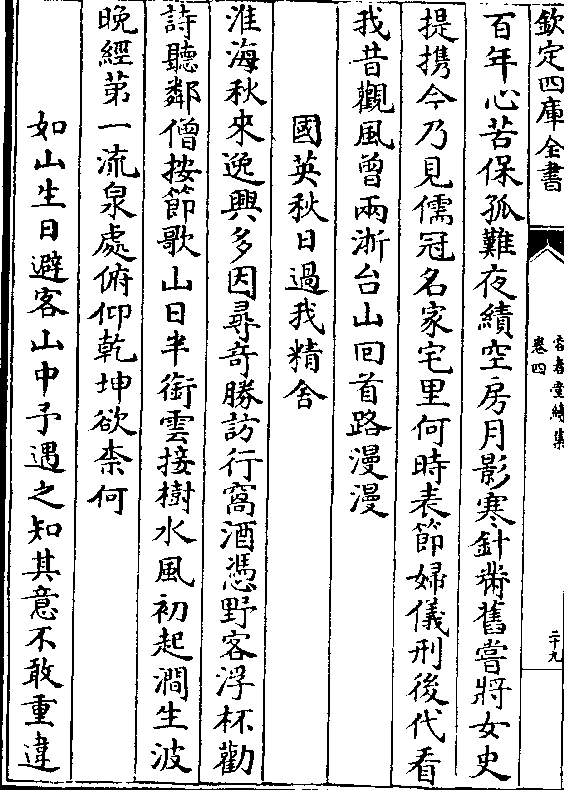 欽定四庫全書
容春堂續集
卷四
二十九
百年心苦保孤難夜績空房月影寒針黹舊嘗將女史
提携今乃見儒冠名家宅里何時表節婦儀刑後代看
我昔觀風曾兩浙台山回首路漫漫
國英秋日過我精舍
淮海秋來逸興多因尋奇勝訪行窩酒憑野客浮杯勸
詩聽鄰僧按節歌山日半銜雲接樹水風初起澗生波
晚經第一流泉處俯仰乾坤欲柰何
如山生日避客山中予遇之知其意不敢重違